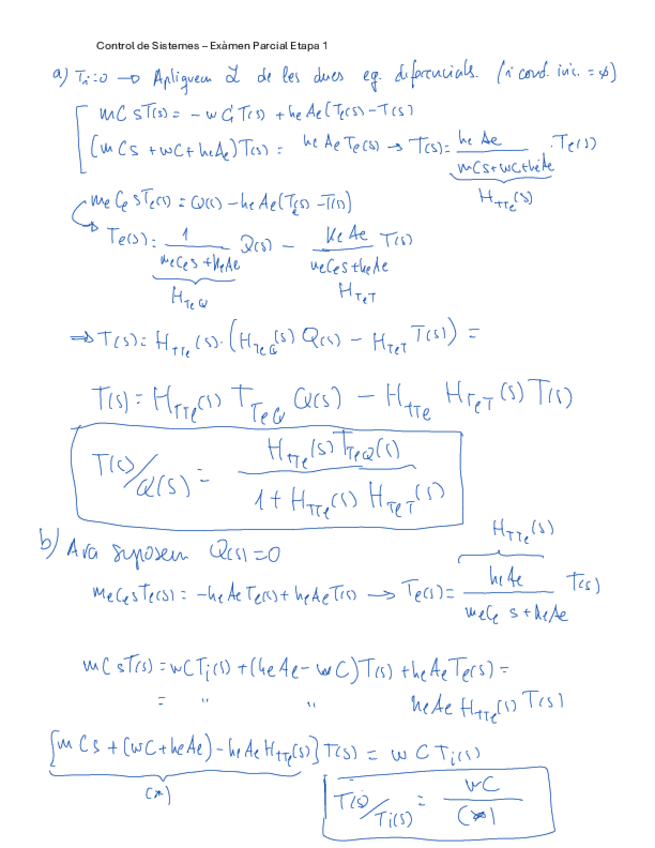 Control de Sistemes – Exàmen Parcial Etapa 1
a) Ti=0 → Apliquem L de les dues eq. diferencials. (i cond. inic. = ø)
mC sT(s) = -wC T(s) + heAe(Te(s) - T(s))
(mCs + wC + heAe)T(s) = heAe Te(s) → T(s) = heAe / (mCs+wC+heAe) · Te(s)
HTTe(s)
meCe sTe(s) = Q(s) - heAe(Te(s) - T(s))
Te(s) = 1 / (meCes + heAe) Q(s) - heAe / (meCes+heAe) T(s)
HTeQ HTeT
⇒ T(s) = HTTe(s)·(HTeQ(s) Q(s) - HTeT T(s)) =
T(s) = HTTe(s) TTeQ Q(s) - HTTe HTeT(s) T(s)
T(s)/Q(s) = HTTe(s) TTeQ(s) / (1 + HTTe(s) HTeT(s))
b) Ara suposem Q(s)=0
HTTe(s)
meCesTe(s) = -heAeTe(s) + heAeT(s) → Te(s) = heAe / (meCe s + heAe) T(s)
mCsT(s) = wCTi(s) + (heAe - wC)T(s) + heAeTe(s) =
= " " heAe HTTe(s) T(s)
[mCs + (wC + heAe) - heAeHTTe(s)] T(s) = wCTi(s)
(*)
T(s)/Ti(s) = wC / (*)